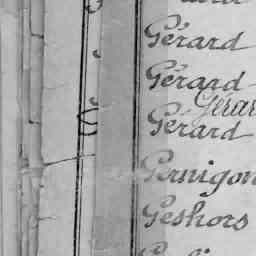 Gérard
Gérard
Gérar
Gérard
Pernigon
Geshors